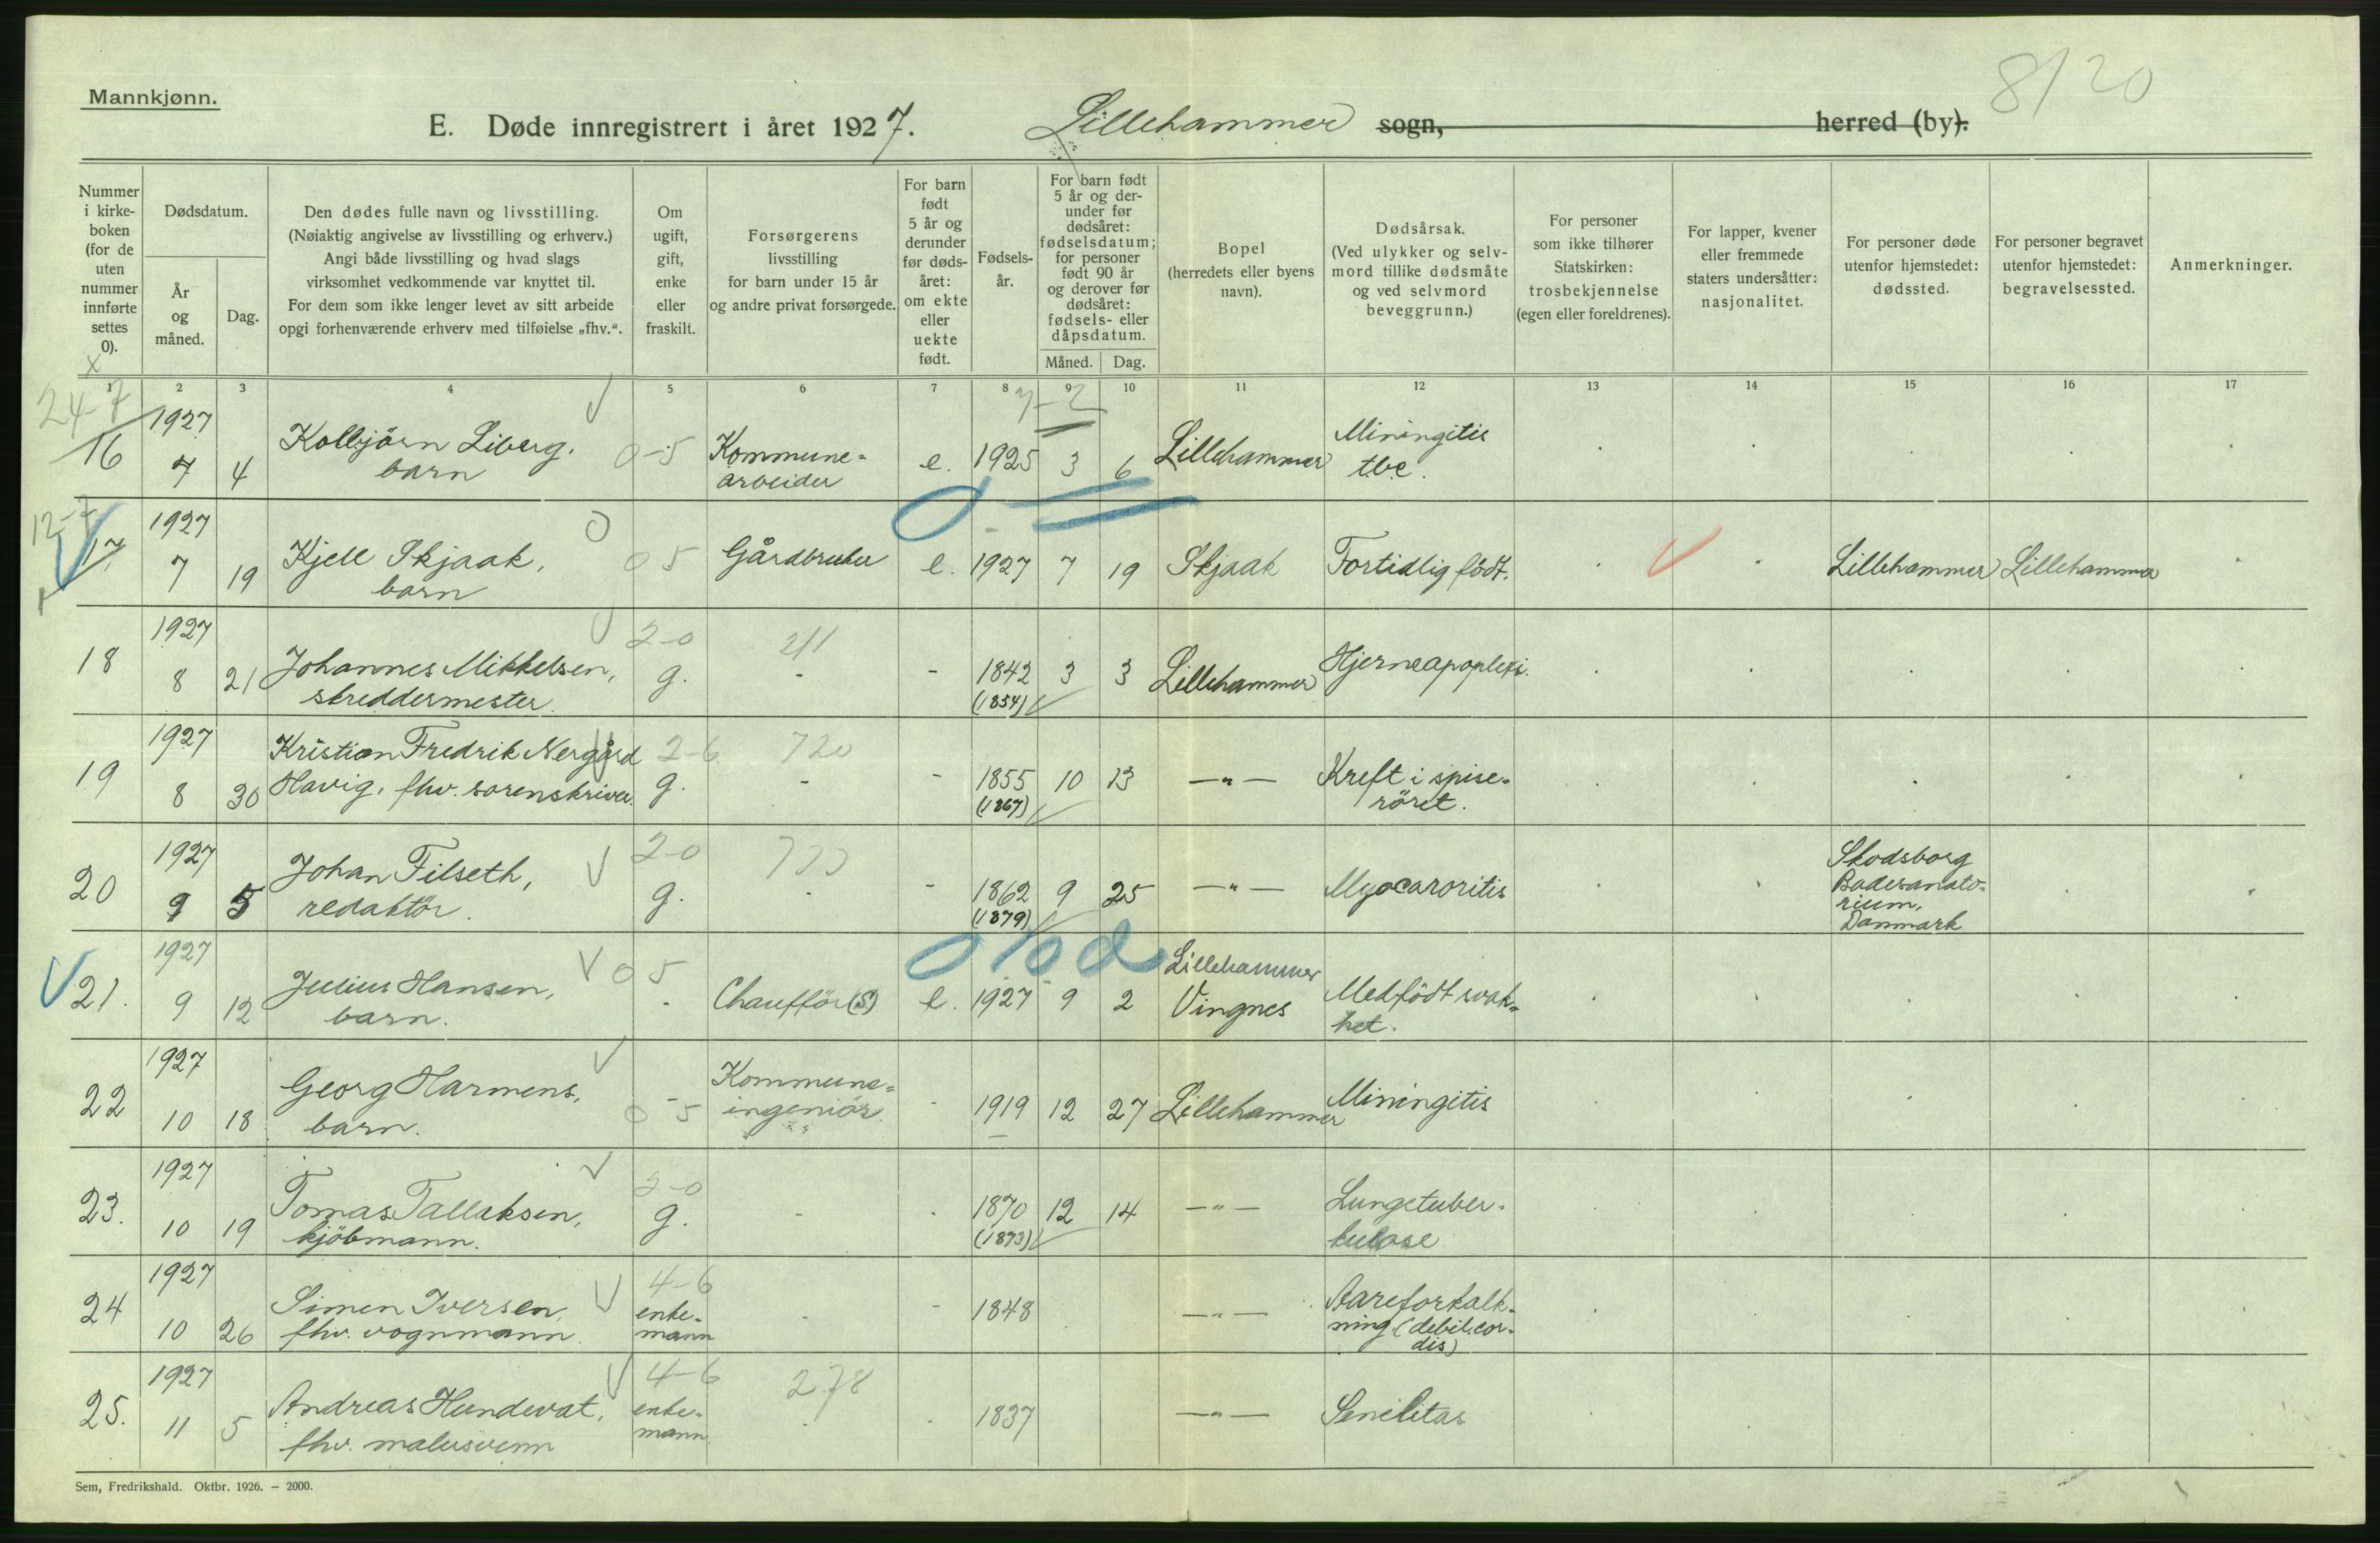 8/20
Mannkjønn.
E. Døde innregistrert i året 1927. Lillehammer sogn, herred (by).
Nummer i kirke- boken (for de uten nummer innførte settes 0).
Dødsdatum.
År og måned.
Dag.
Den dødes fulle navn og livsstilling.
(Nøiaktig angivelse av livsstilling og erhverv.)
Angi både livsstilling og hvad slags
virksomhet vedkommende var knyttet til.
For dem som ikke lenger levet av sitt arbeide
opgi forhenværende erhverv med tilføielse „fhv.“.
Om ugift, gift, enke eller fraskilt.
Forsørgerens
livsstilling
for barn under 15 år
og andre privat forsørgede.
For barn født 5 år og derunder før døds- året: om ekte eller uekte født.
Fødsels- år.
For barn født 5 år og der- under før dødsåret: fødselsdatum; for personer født 90 år og derover før dødsåret: fødsels- eller dåpsdatum.
Måned. Dag.
Bopel
(herredets eller byens
navn).
Dødsårsak.
(Ved ulykker og selv-
mord tillike dødsmåte
og ved selvmord
beveggrunn.)
For personer
som ikke tilhører
Statskirken:
trosbekjennelse
(egen eller foreldrenes).
For lapper, kvener
eller fremmede
staters undersåtter:
nasjonalitet.
For personer døde
utenfor hjemstedet:
dødssted.
For personer begravet
utenfor hjemstedet:
begravelsessted.
Anmerkninger.
1 2 3 4 5 6 7 8 9 10 11 12 13 14 15 16 17
24-7 7-2
16 1927 7 4 Kolbjörn Liberg, barn 0-5 Kommune- arbeider e. 1925 3 6 Lillehammer Miningitis tbc.
12-7
17 1927 7 19 Kjell Skjaak, barn 0 5 Gårdbruker e. 1927 7 19 Skjaak Fortidlig födt. Lillehammer Lillehammer
18 1927 8 21 Johannes Mikkelsen, skreddermester. 2-0 g. 211 - - 1842 (1854) 3 3 Lillehammer Hjerneapoplexi.
19 1927 8 30 Kristian Fredrik Nergård Havig, fhv. sorenskriver. 2-6 g. 720 - - 1855 (1867) 10 13 —"— Kreft i spise- röret.
20 1927 9 5 Johan Filseth, redaktör. 2-0 g. - - 1862 (1879) 9 25 —"— Myocaroritis Skodsborg Badesanato- rium, Danmark
21. 1927 9 12 Julius Hansen, barn. 0 5 Chaufför (S) e. 1927 9 2 Lillehammer Vingnes Medfödt svak- het.
22 1927 10 18 Georg Harmens, barn. 0-5 Kommune- ingeniör - 1919 12 27 Lillehammer Miningitis
23. 1927 10 19 Tomas Tallaksen, kjöbmann. 2-0 g. - 1870 (1873) 12 14 —"— Lungetuber- kulose
24 1927 10 26 Simen Iversen, fhv. vognmann. 4-6 enke- mann - 1848 —"— Aareforkalk- ning (debil. cor- dis)
25. 1927 11 5 Andreas Hundevat, fhv. malersvenn 4-6 enke- mann. 278 1837 —"— Senilitas
Sem, Fredrikshald. Oktbr. 1926. – 2000.